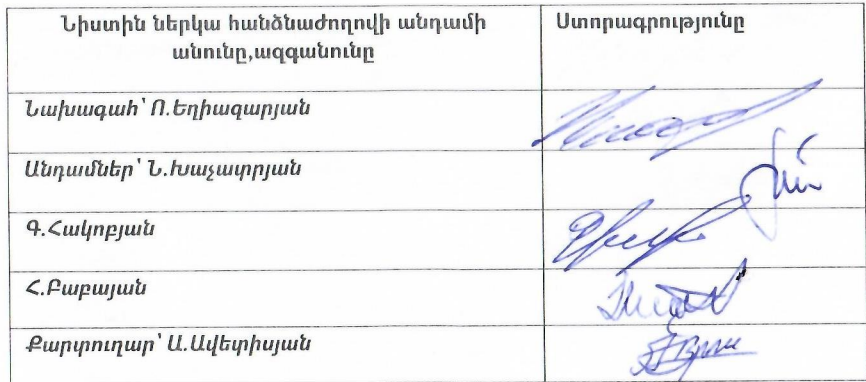 Նիստին ներկա հանձնաժողովի անդամի
անունը,ազգանունը
Ստորագրությունը
Նախագահ՝ Ո.Եղիազարյան
Անդամներ՝ Ն.Խաչատրյան
Գ.Հակոբյան
Հ.Բաբայան
Քարտուղար՝ Ա.Ավետիսյան